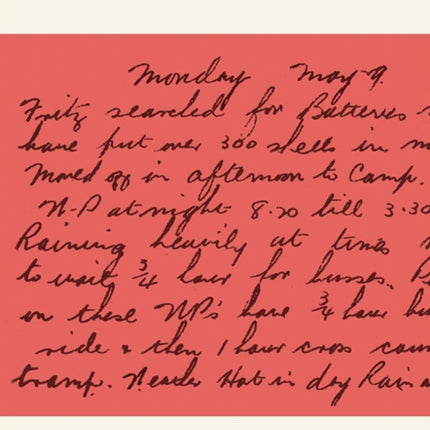 Monday May 9.
Fritz searched for Batteries
have put over 300 shells in
Moved off in afternoon to Camp.
N-P at night 8.20 till 3.30
Raining heavily at times
to wait ¾ hour for busses.
on these NPs have ¾ hour
ride & then 1 hour cross
tramp. Hot in day Rain